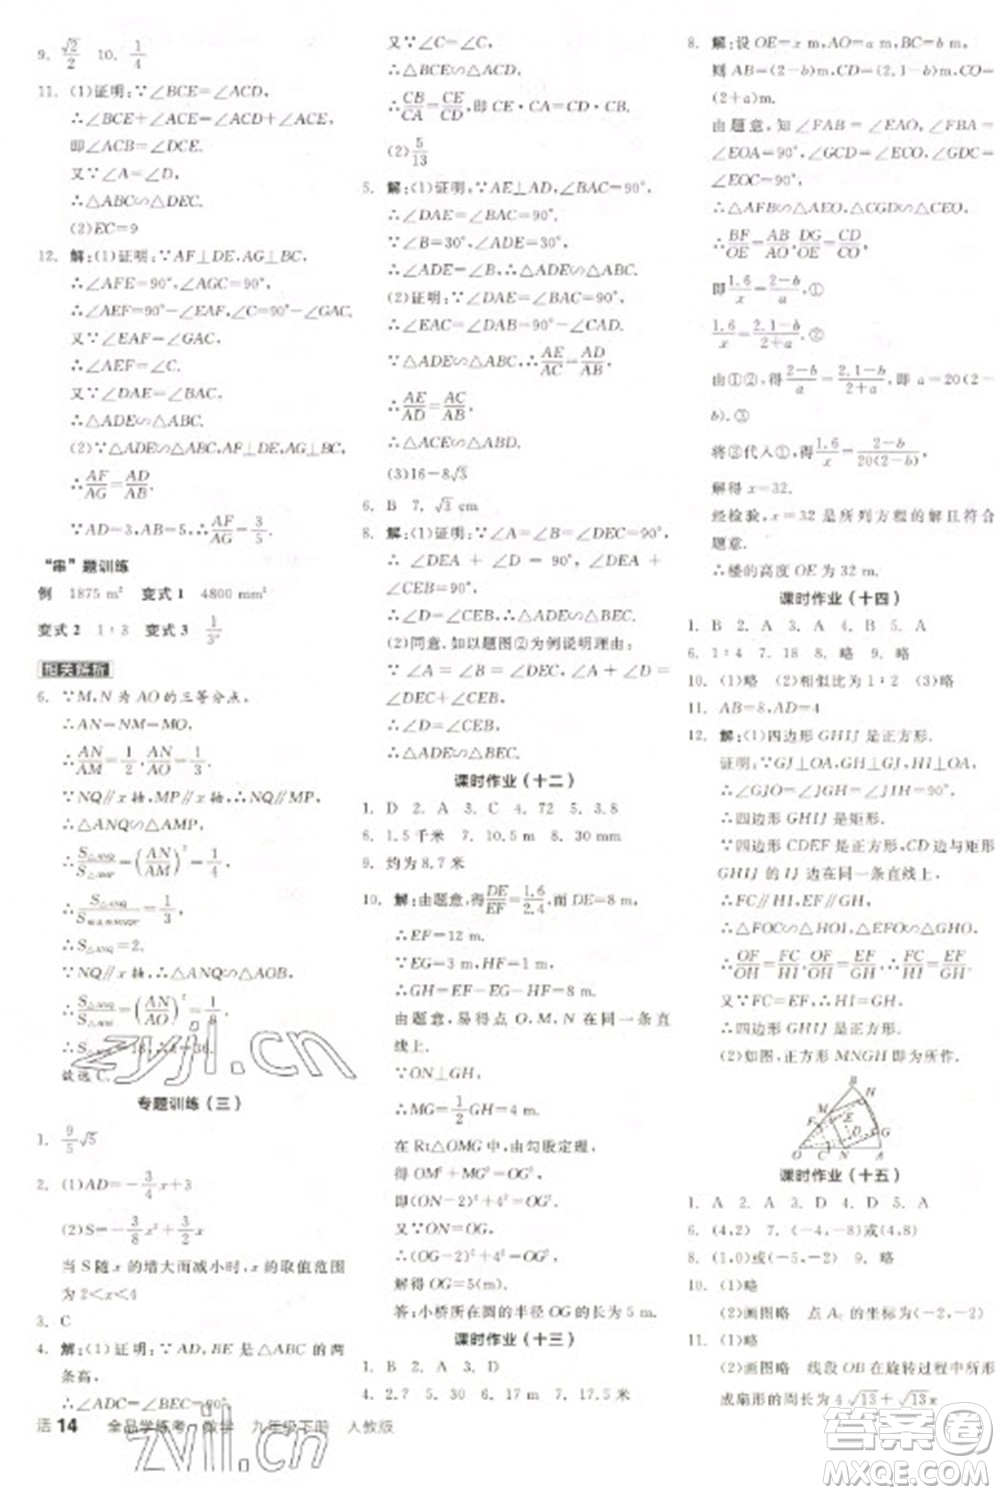 9. √2/2 10. 1/4
11. (1)证明:∵∠BCE=∠ACD,
∴∠BCE+∠ACE=∠ACD+∠ACE,
即∠ACB=∠DCE.
又∵∠A=∠D,
∴△ABC∽△DEC.
(2)EC=9
12. 解:(1)证明:∵AF⊥DE,AG⊥BC,
∴∠AFE=90°,∠AGC=90°,
∴∠AEF=90°-∠EAF,∠C=90°-∠GAC.
又∵∠EAF=∠GAC,
∴∠AEF=∠C.
又∵∠DAE=∠BAC,
∴△ADE∽△ABC.
(2)∵△ADE∽△ABC,AF⊥DE,AG⊥BC,
∴AF/AG=AD/AB.
∵AD=3,AB=5,∴AF/AG=3/5.
“串”题训练
例 1875 m² 变式1 4800 mm²
变式2 1∶3 变式3
相关解析
6. ∵M,N为AO的三等分点,
∴AN=NM=MO,
∴AN/AM=1/2,AN/AO=1/3.
∵NQ∥x轴,MP∥x轴,
∴△ANQ∽△AMP,
∴S△ANQ/S△AMP=(AN/AM)²=1/4,
∴S△ANQ=2.
∵NQ∥x轴,∴△ANQ∽△AOB,
故选C.
专题训练(三)
1. 9/5√5
2. (1)AD=-3/4x+3
当S随x的增大而减小时,x的取值范围
2<x<4
3. C
4. 解:(1)证明:∵AD,BE是△ABC的两
条高,
∴∠ADC=∠BEC=90°.
又∵∠C=∠C,
∴△BCE∽△ACD,
∴CB/CA=CE/CD,即CE·CA=CD·CB.
(2)5/13
5. 解:(1)证明:∵AE⊥AD,∠BAC=90°,
∴∠DAE=∠BAC=90°.
∵∠B=30°,∠AED=30°,
∴∠ADE=∠ACB,
∴△ADE∽△ACB.
(2)证明:∵∠DAE=∠BAC=90°,
∴∠EAC=∠DAB=90°-∠CAD.
∵△ADE∽△ACB,∴AE/AB=AD/AC,
∴△ACE∽△ABD.
(3)16-8√3
6. B 7. √3 cm
8. 解:(1)证明:∵∠A=∠B=∠DEC=90°,
∴∠DEA+∠CEB=90°,
∠DEA+∠D=90°,
∴∠D=∠CEB,∴△ADE∽△BEC.
(2)同意.如以题图②为例说明理由:
∵∠A=∠B=∠DEC,
∠DEB=∠DEC+∠CEB,
∴∠D=∠CEB,
∴△ADE∽△BEC.
课时作业(十二)
1. D 2. A 3. C 4. 72 5. 3.8
6. 1.5千米 7. 10.5 m 8. 30 mm
9. 约为8.7米
10. 解:由题意,得DE/EF=1.6/2.4,DE=8 m,
∴EF=12 m.
∵EG=3 m,HF=1 m,
∴GH=EF-EG-HF=8 m.
由题意,可知点O,M,N在同一条直
线上.
∵ON⊥GH,
∴MG=1/2GH=4 m.
在Rt△OMG中,由勾股定理,
得OM²+MG²=OG²,
即(ON-2)²+4²=OG².
又∵ON=OG,
∴(OG-2)²+4²=OG²,
解得OG=5 m.
答:小桥所在圆的半径OG的长为5 m.
课时作业(十三)
1. B 2. A 3. D
4. 2.7 5. 30 6. 17 7. 17.5 m
8. 解:设OE=x m,AO=a m,BO=b m,
则AD=2 m,BF=1.6 m,CO=
(2+a)m.
由题意,知∠FAB=∠EAO,∠FBA=
∠EOA=90°,∠GCD=∠ECO,∠GDC=
∠EOC=90°,
∴△AFB∽△AEO,△CGD∽△CEO,
∴BF/OE=AB/AO,DG/OE=CD/CO,
即1.6/x=(2-b)/a,①
1.6/x=(2.1-b)/(2+a).②
由①②,得(2-b)/a=(2.1-b)/(2+a),即a=20(2-
b).③
将③代入①,得1.6/x=(2-b)/20(2-b),
解得x=32.
经检验,x=32是所列方程的解且符合
题意.
∴楼的高度OE为32 m.
课时作业(十四)
1. B 2. A 3. A 4. A 5. A
6. 1∶4 7. 18 8. 略 9. 略
10. (1)略 (2)相似比为1∶2 (3)略
11. AB=8,AD=4
12. 解:(1)四边形GHIJ是正方形.
证明:∵GJ⊥OA,GH⊥GJ,HI⊥OA,
∴∠GJO=∠JIH=∠JGH=90°,
∴四边形GHIJ是矩形.
∵四边形CDEF是正方形,CD边与矩形
GHIJ的IJ边在同一条直线上,
∴FC∥HI,EF∥GH,
∴△FOC∽△HOI,△EFO∽△GHO,
∴OF/OH=FC/HI,OF/OH=EF/GH,∴FC/HI=EF/GH.
又∵FC=EF,∴HI=GH,
∴四边形GHIJ是正方形.
(2)如图,正方形MNGH即为所作.
B
F H
E
G
O C N A
课时作业(十五)
1. A 2. A 3. D 4. D 5. A
6. (4,2) 7. (-4,-8)或(4,8)
8. (1,0)或(-5,-2) 9. 略
10. (1)略
(2)画图略
11. (1)略
(2)画图略 线段OB在旋转过程中所形
成扇形的周长为4√13+√13π
活 14 全品学练考 数学 九年级下册 人教版
zyjl.cn
zyjl.cn
答案圈
MXQE.COM